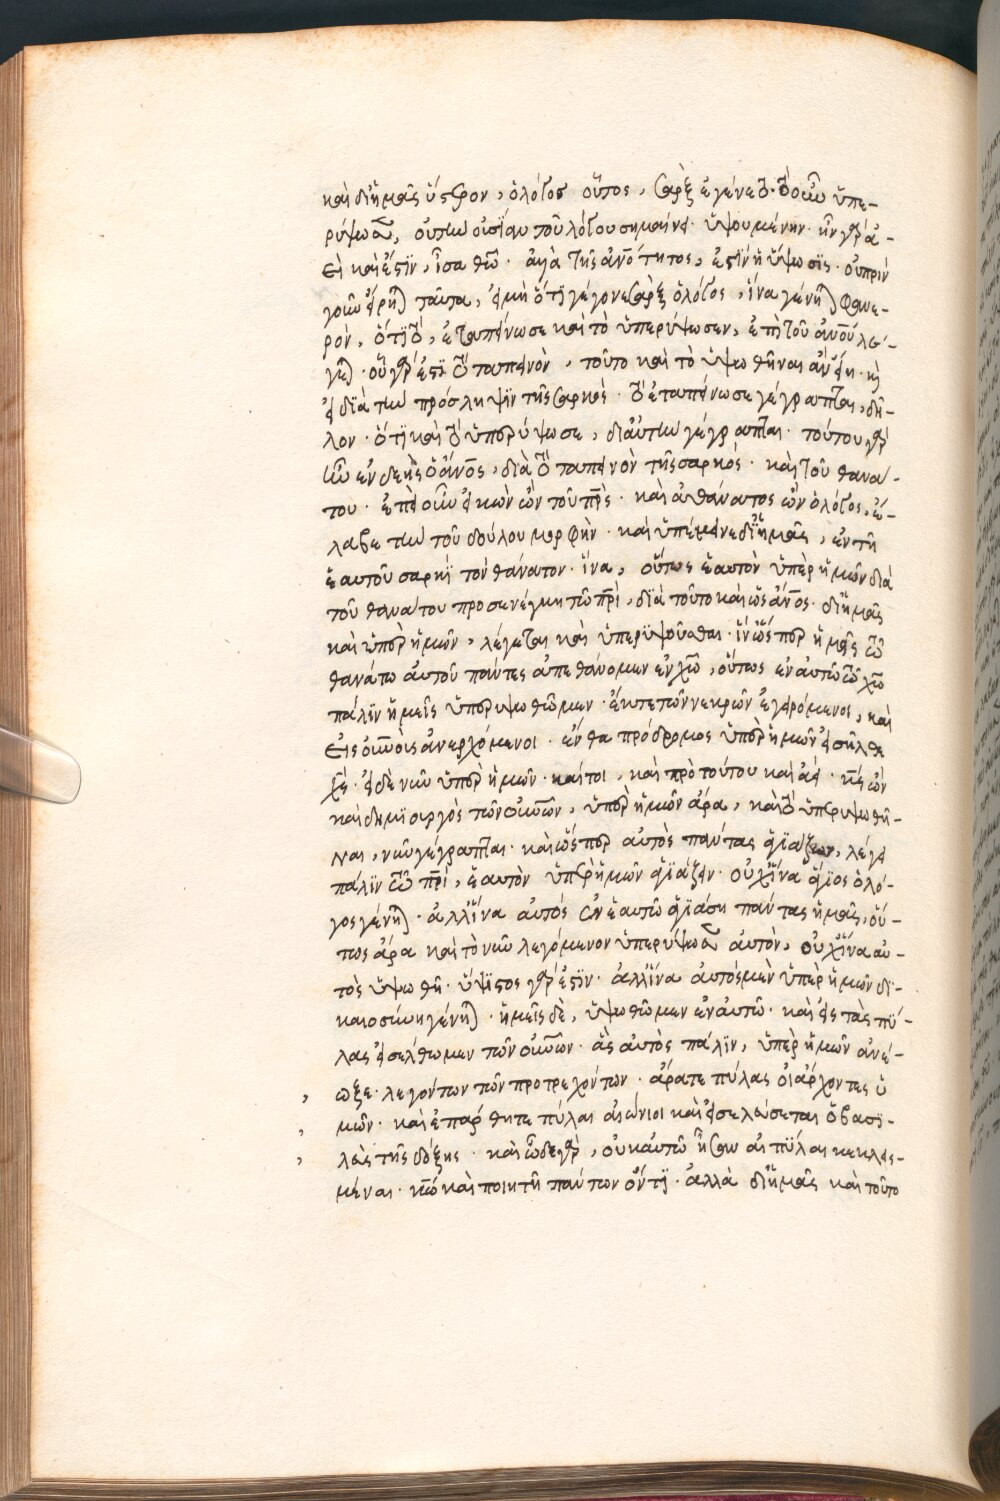 καὶ δι' ἡμᾶς ὕστερον, ὁ λόγος οὗτος, σὰρξ ἐγένετο· τὸ οὖν ὑπε-
ρύψωσε, οὐ τὴν οὐσίαν τοῦ λόγου σημαίνει ὑψουμένην· ἦν γὰρ ἀ-
εὶ καὶ ἔστϊν, ἶσα θεῶ· ἀλλὰ τῆς ἀνότητος, ἐστὶν ἡ ὕψωσϊς· οὐ πρὶν
γοῦν εἴρηται ταῦτα, εἰ μὴ ὅτϊ γέγονε σὰρξ ὁ λόγος, ἵνα γένηται φανε-
ρὸν, ὅτϊ τὸ, ἐταπείνωσε καὶ τὸ ὑπερύψωσεν, ἐπὶ τοῦ ἀνοῦ λέ-
γεται· οὗ γάρ ἐστϊ τὸ ταπεινὸν, τούτου καὶ τὸ ὑψωθῆναι ἂν εἴη· κὶ
εἰ δϊὰ τὴν πρόσληψϊν τῆς σαρκὸς· τὸ ἐταπείνωσε γέγραπται, δῆ-
λον· ὅτϊ καὶ τὸ ὑπερύψωσε, δι' αὐτὴν γέγραπται· τούτου γὰρ
ἦν ἐνδεὴς ὁ ἄνος, διὰ τὸ ταπεινὸν τῆς σαρκὸς· καὶ τοῦ θανά-
του· ἐπεὶ οὖν εἰκὼν ὢν τοῦ πρς· καὶ ἀθάνατος ὢν ὁ λόγος, ἔ-
λαβε τὴν τοῦ δούλου μορφὴν· καὶ ὑπέμεινε δι' ἡμᾶς, ἐν τῆ
ἑαυτοῦ σαρκὶ τὸν θάνατον· ἵνα, οὕτως ἑαυτὸν ὑπὲρ ἡμῶν διὰ
τοῦ θανάτου προσενέγκη τῶ πρὶ, διὰ τοῦτο καὶ ὡς ἄνος· δι' ἡμᾶς
καὶ ὑπὲρ ἡμῶν, λέγεται καὶ ὑπερϋψοῦσθαι· ἵν' ὥσπερ ἡμεῖς τῶ
θανάτω αὐτοῦ πάντες ἀπεθάνομεν ἐν χῶ, οὕτως ἐν αὐτῶ τῶ χῶ
πάλϊν ἡμεῖς ὑπερυψωθῶμεν· ἔκ τε τῶν νεκρῶν ἐγειρόμενοι, καὶ
εἰς οὐνοὺς ἀνερχόμενοι· ἔνθα πρόδρομος ὑπὲρ ἡμῶν εἰσῆλθε
χς· εἰ δὲ νῦν ὑπὲρ ἡμῶν· καίτοι, καὶ πρὸ τούτου καὶ ἀεὶ· κς ὢν
καὶ δημιουργὸς τῶν οὐνῶν, ὑπὲρ ἡμῶν ἄρα, καὶ τὸ ὑπερυψωθῆ-
ναι, νῦν γέγραπται· καὶ ὥσπερ αὐτὸς πάντας ἁγϊάζων, λέγει
πάλϊν τῶ πρὶ, ἑαυτὸν ὑπὲρ ἡμῶν ἁγϊάζειν· οὐχ ἵνα ἅγϊος ὁ λό-
γος γένηται· ἀλλ' ἵνα αὐτὸς ἐν ἑαυτῶ ἁγϊάση πάντας ἡμᾶς, οὕ-
τως ἄρα καὶ τὸ νῦν λεγόμενον ὑπερύψωσε αὐτὸν, οὐχ ἵνα αὐ-
τὸς ὑψωθῆ· ὕψϊστος γάρ ἐστϊν· ἀλλ' ἵνα αὐτὸς μὲν ὑπὲρ ἡμῶν δϊ-
καιοσύνη γένηται· ἡμεῖς δὲ, ὑψωθῶμεν ἐν αὐτῶ· καὶ εἰς τὰς πύ-
λας εἰσέλθωμεν τῶν οὐνῶν· ἃς αὐτὸς πάλϊν, ὑπὲρ ἡμῶν ἀνέ-
ωξε· λεγόντων τῶν προτρεχόντων· ἄρατε πύλας οἱ ἄρχοντες ὑ
μῶν· καὶ ἐπάρθητε πύλαι αἰώνιοι καὶ εἰσελεύσεται ὁ βασϊ-
λεὺς τῆς δόξης· καὶ ὧδε γὰρ, οὐκ αὐτῶ ἦσαν αἱ πύλαι κεκλεισ-
μέναι· κῶ καὶ ποιητῆ πάντων ὄντϊ· ἀλλὰ δι' ἡμᾶς καὶ τοῦτο